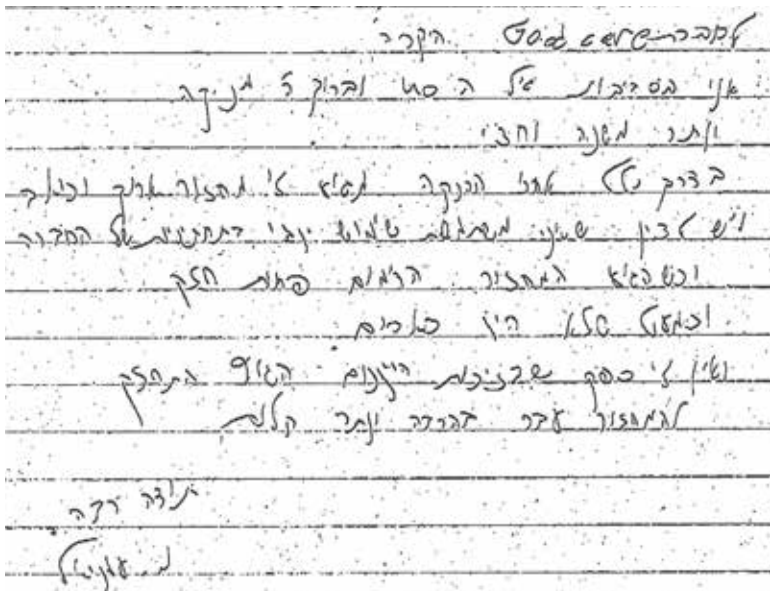 לחברת היקרה
אני בסביבות גיל ה 40 וברוך ה' מניקה
יותר משנה וחצי
בדרך כלל אחרי הנקה מגיע לי מחזור ארוך וכואב
ויש לציין שאני משתמשת שימוש יומי בתחתונית של החברה
וכשהגיע המחזור הדימום פחות חזק
וכמעט שלא היו כאבים
ואין לי ספק שבזכות היינום הגוף התחזק
והמחזור עבר בהרבה יותר קלות
תודה רבה